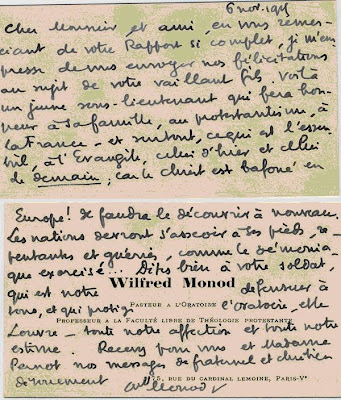 6 nov. 19
Cher Monsieur et ami, en vous remer-
ciant de votre Rapport si complet, je m'em-
presse de vous envoyer nos félicitations
au sujet de votre vaillant fils. Voilà
un jeune sous-lieutenant qui fera hon-
neur à sa famille, au protestantisme, à
la France - et surtout, ce qui est l'essen-
tiel, à l'Evangile, celui d'hier et celui
de demain; car le Christ est bafoué en
Europe! Il faudra le découvrir à nouveau.
Les nations devront s'asseoir à ses pieds, re-
pentantes et guéries, comme le démonia-
que exorcisé... Dites bien à votre soldat,
Wilfred Monod
qui est notre défenseur à
PASTEUR A L'ORATOIRE
tous, et qui protège l'Oratoire, et le
PROFESSEUR A LA FACULTÉ LIBRE DE THÉOLOGIE PROTESTANTE
Louvre - toute notre affection et toute notre
estime. Recevez pour vous et Madame
Pannot nos messages de fraternel et chrétien
dévouement
W Monod
75, RUE DU CARDINAL LEMOINE, PARIS-Vᵉ